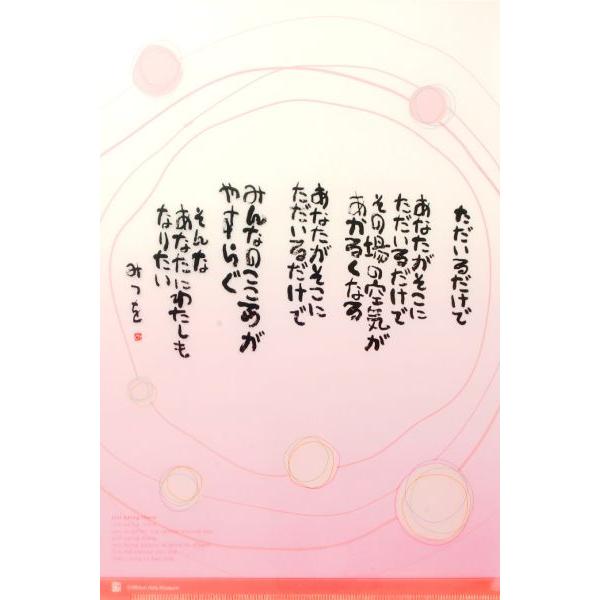 ただいるだけで
あなたがそこに
ただいるだけで
その場の空気が
あかるくなる
あなたがそこに
ただいるだけで
みんなのこころが
やすらぐ
そんな
あなたにわたしも
なりたい
みつを
Just Being There